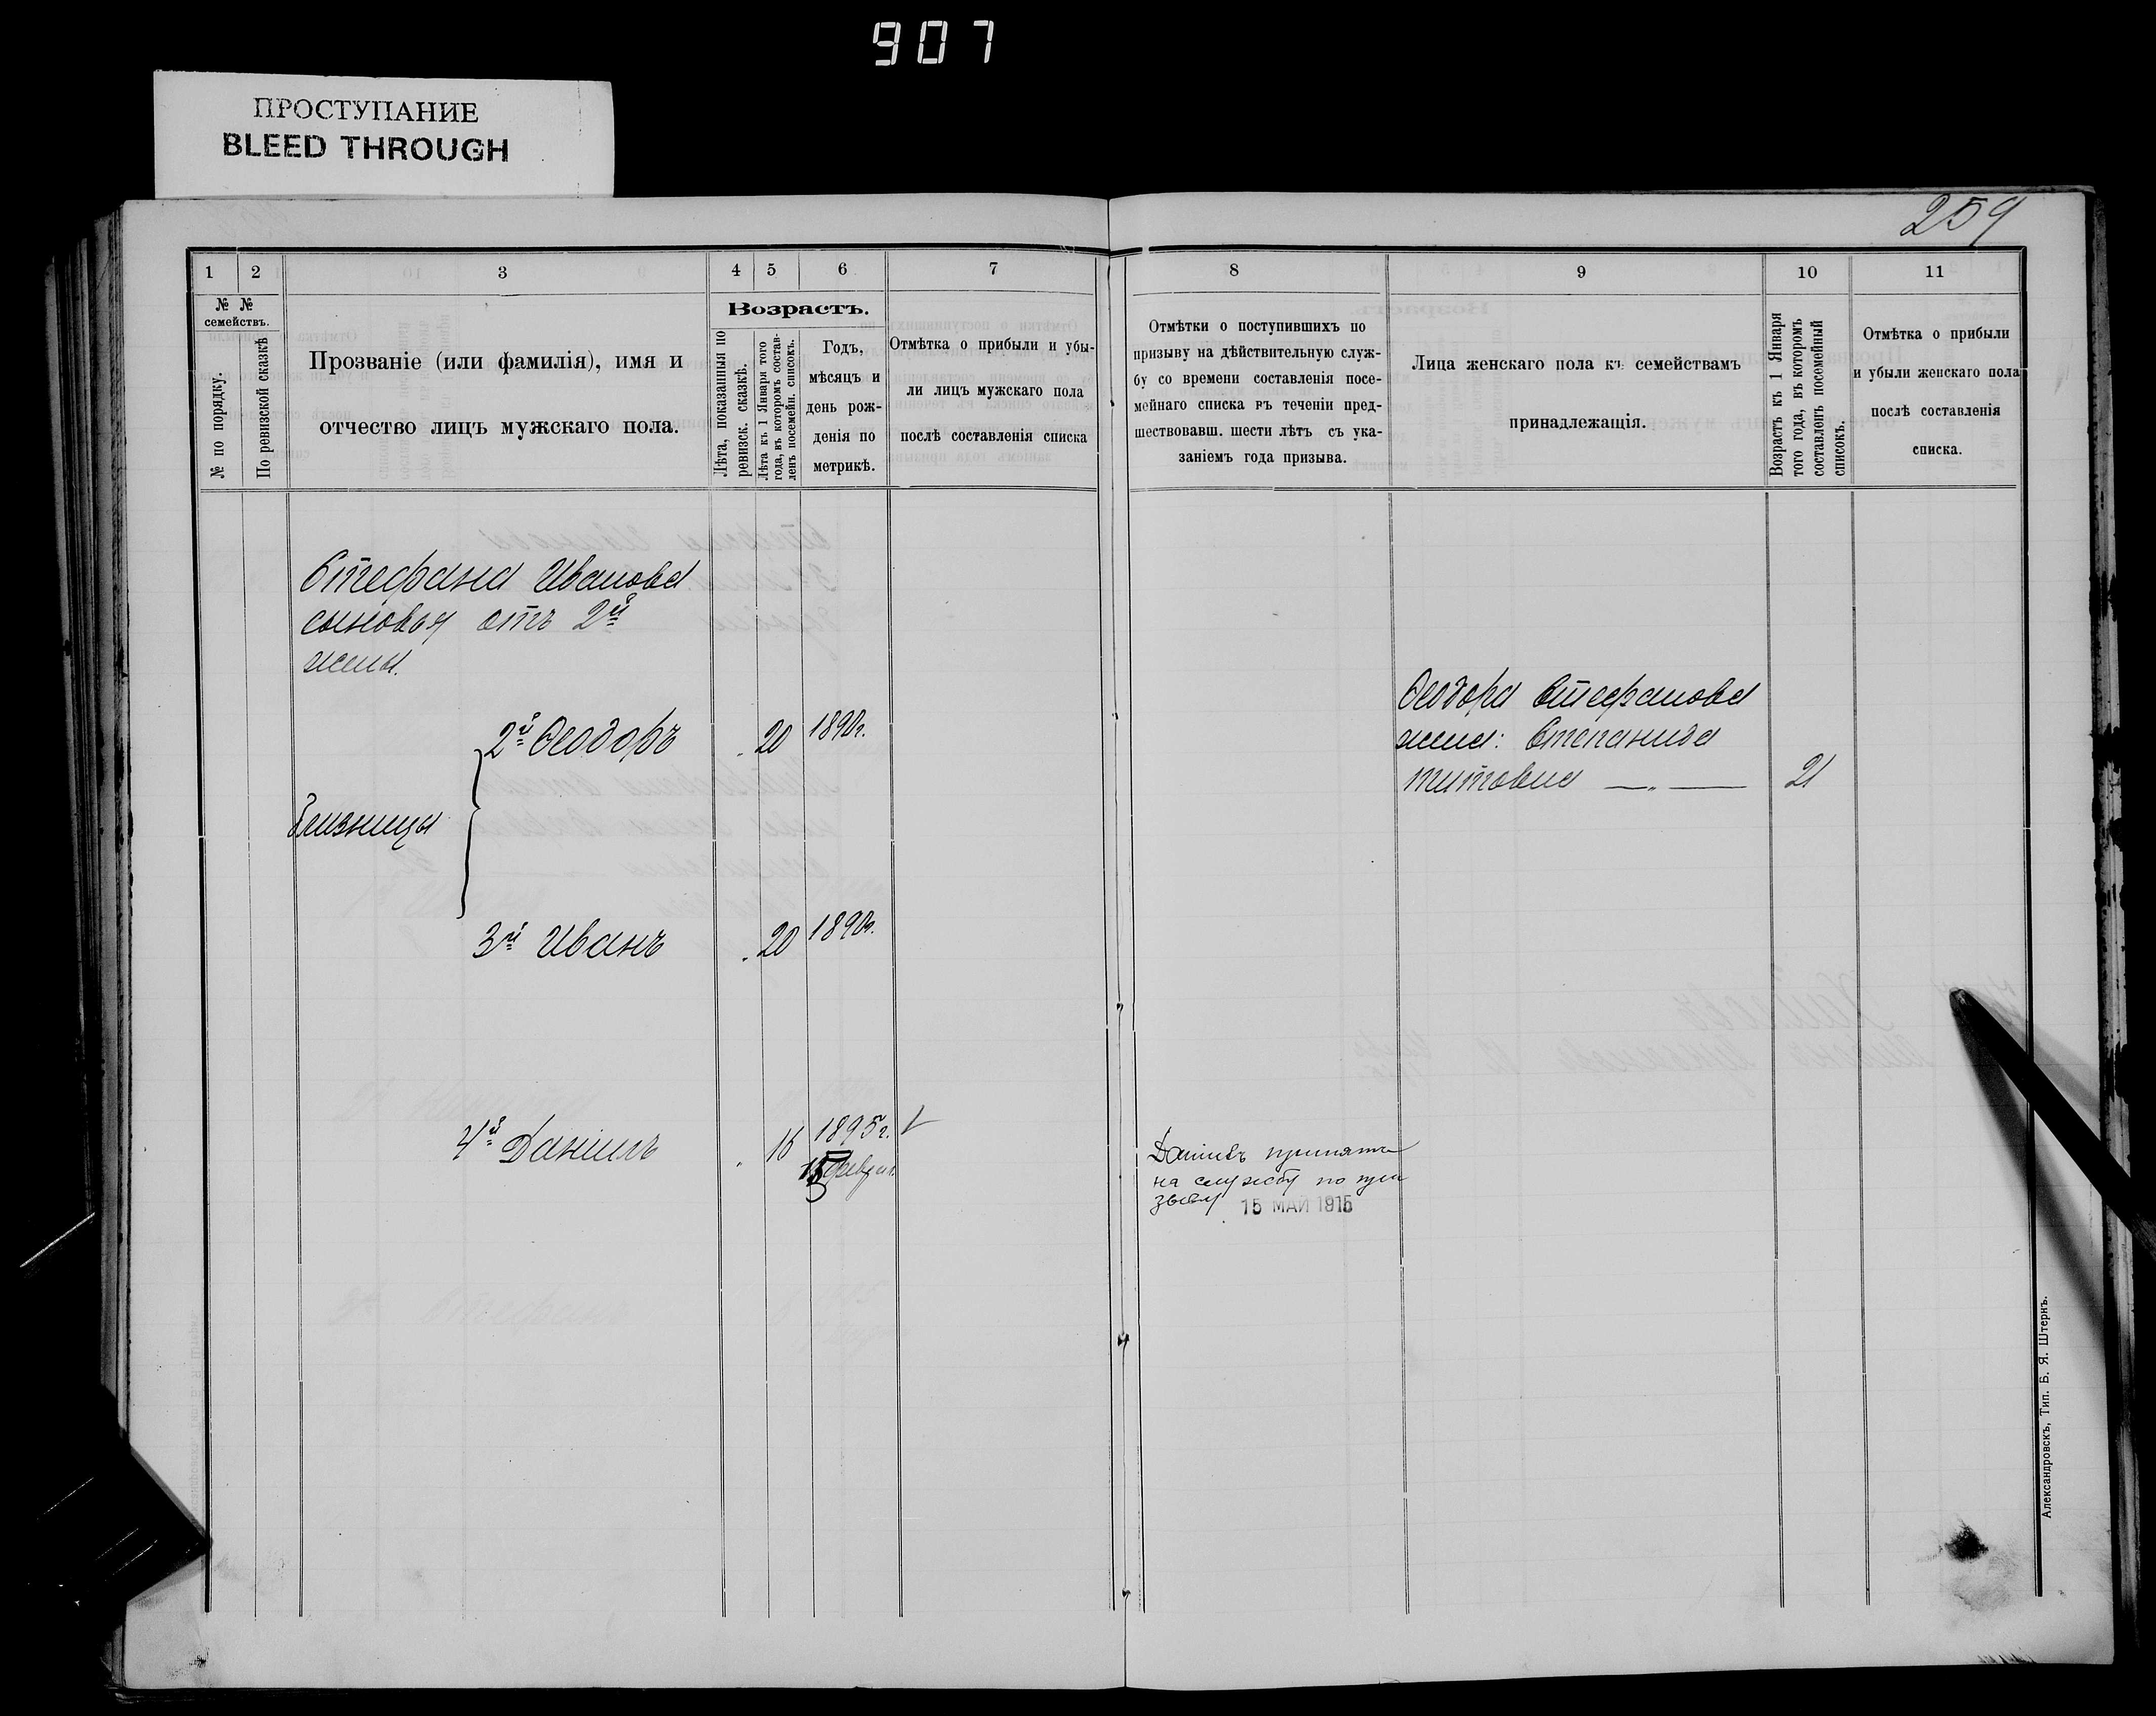 907
ПРОСТУПАНИЕ
BLEED THROUGH
259
1 2 3 4 5 6 7
№ №
семействъ.
№ по порядку.
По ревизской сказкѣ
Прозваніе (или фамилія), имя и
отчество лицъ мужскаго пола.
Возрастъ.
Лѣта, показанныя по
ревизск. сказкѣ.
Лѣта къ 1 Января того
года, въ которомъ состав-
ленъ посемейн. списокъ.
Годъ,
мѣсяцъ и
день рож-
денія по
метрикѣ.
Отмѣтка о прибыли и убы-
ли лицъ мужскаго пола
послѣ составленія списка
Стефана Иванова
сыновья отъ 2й
жены.
2й Ѳеодоръ 20 1890г.
близнецы
3й Иванъ 20 1890г.
4й Даніилъ 16 1895г.
15 феврал.
8 9 10 11
Отмѣтки о поступившихъ по
призыву на дѣйствительную служ-
бу со времени составленія посе-
мейнаго списка въ теченіи пред-
шествовавш. шести лѣтъ съ ука-
заніемъ года призыва.
Лица женскаго пола къ семействамъ
принадлежащія.
Возрастъ къ 1 Января
того года, въ которомъ
составленъ посемейный
списокъ.
Отмѣтка о прибыли
и убыли женскаго пола
послѣ составленія
списка.
Ѳеодора Стефанова
жена: Степанида
Титовна — „ — 21
Даніилъ принятъ
на службу по при
зыву 15 МАЙ 1915
Александровскъ, Тип. Б. Я. Штернъ.